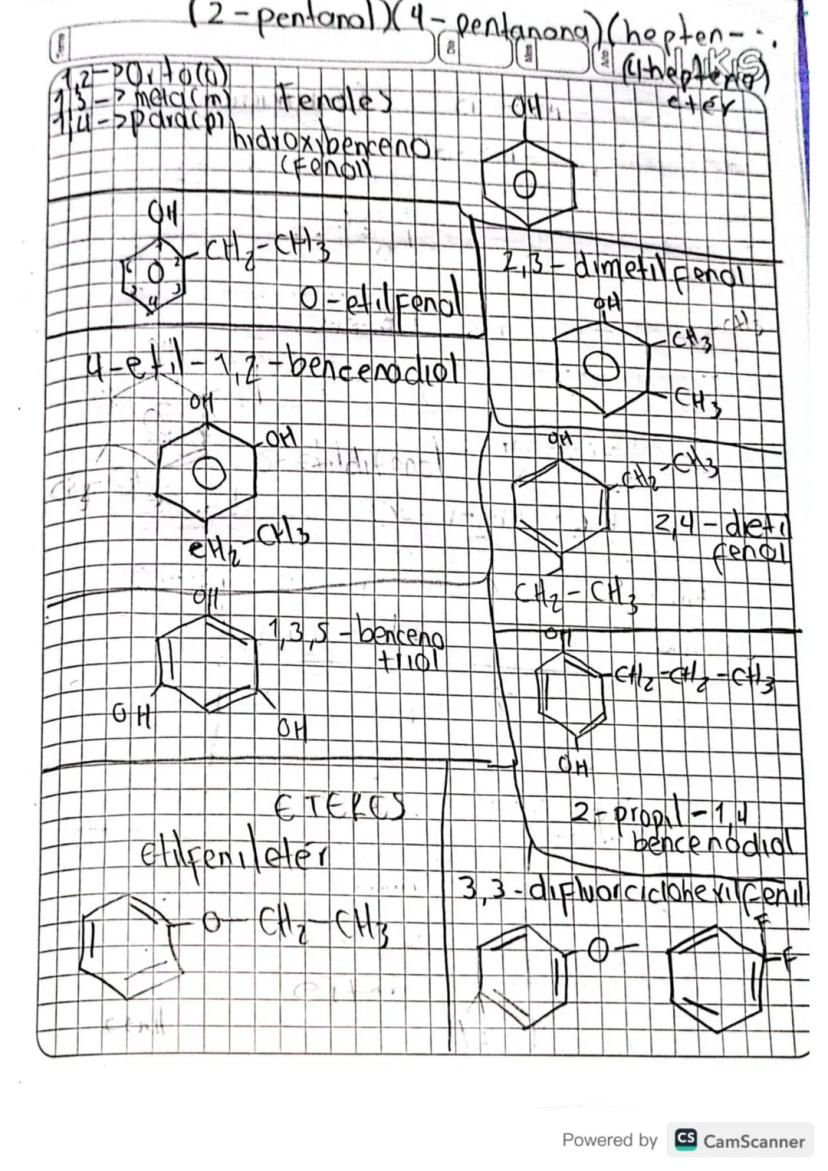 (2-pentanol)(4-pentanona)(hepten-
(4hepteno)
eter
1,2->Orto(o)
1,3-> meta(m)
1,4->para(p)
Fenoles
hidroxibenceno
(fenol)
OH
OH
CH2-CH3
1
2
3
4
O-etilfenol
2,3-dimetilfenol
OH
CH3
CH3
4-etil-1,2-bencenodiol
OH
OH
CH2-CH3
OH
CH2-CH3
2,4-dietil
fenol
CH2-CH3
OH
1,3,5-benceno
triol
OH
OH
OH
CH2-CH2-CH3
OH
2-propil-1,4
bencenodiol
ETERES
Etilfenileter
O-CH2-CH3
3,3-difluorciclohexilfenil
O-
F
F
Powered by CS CamScanner